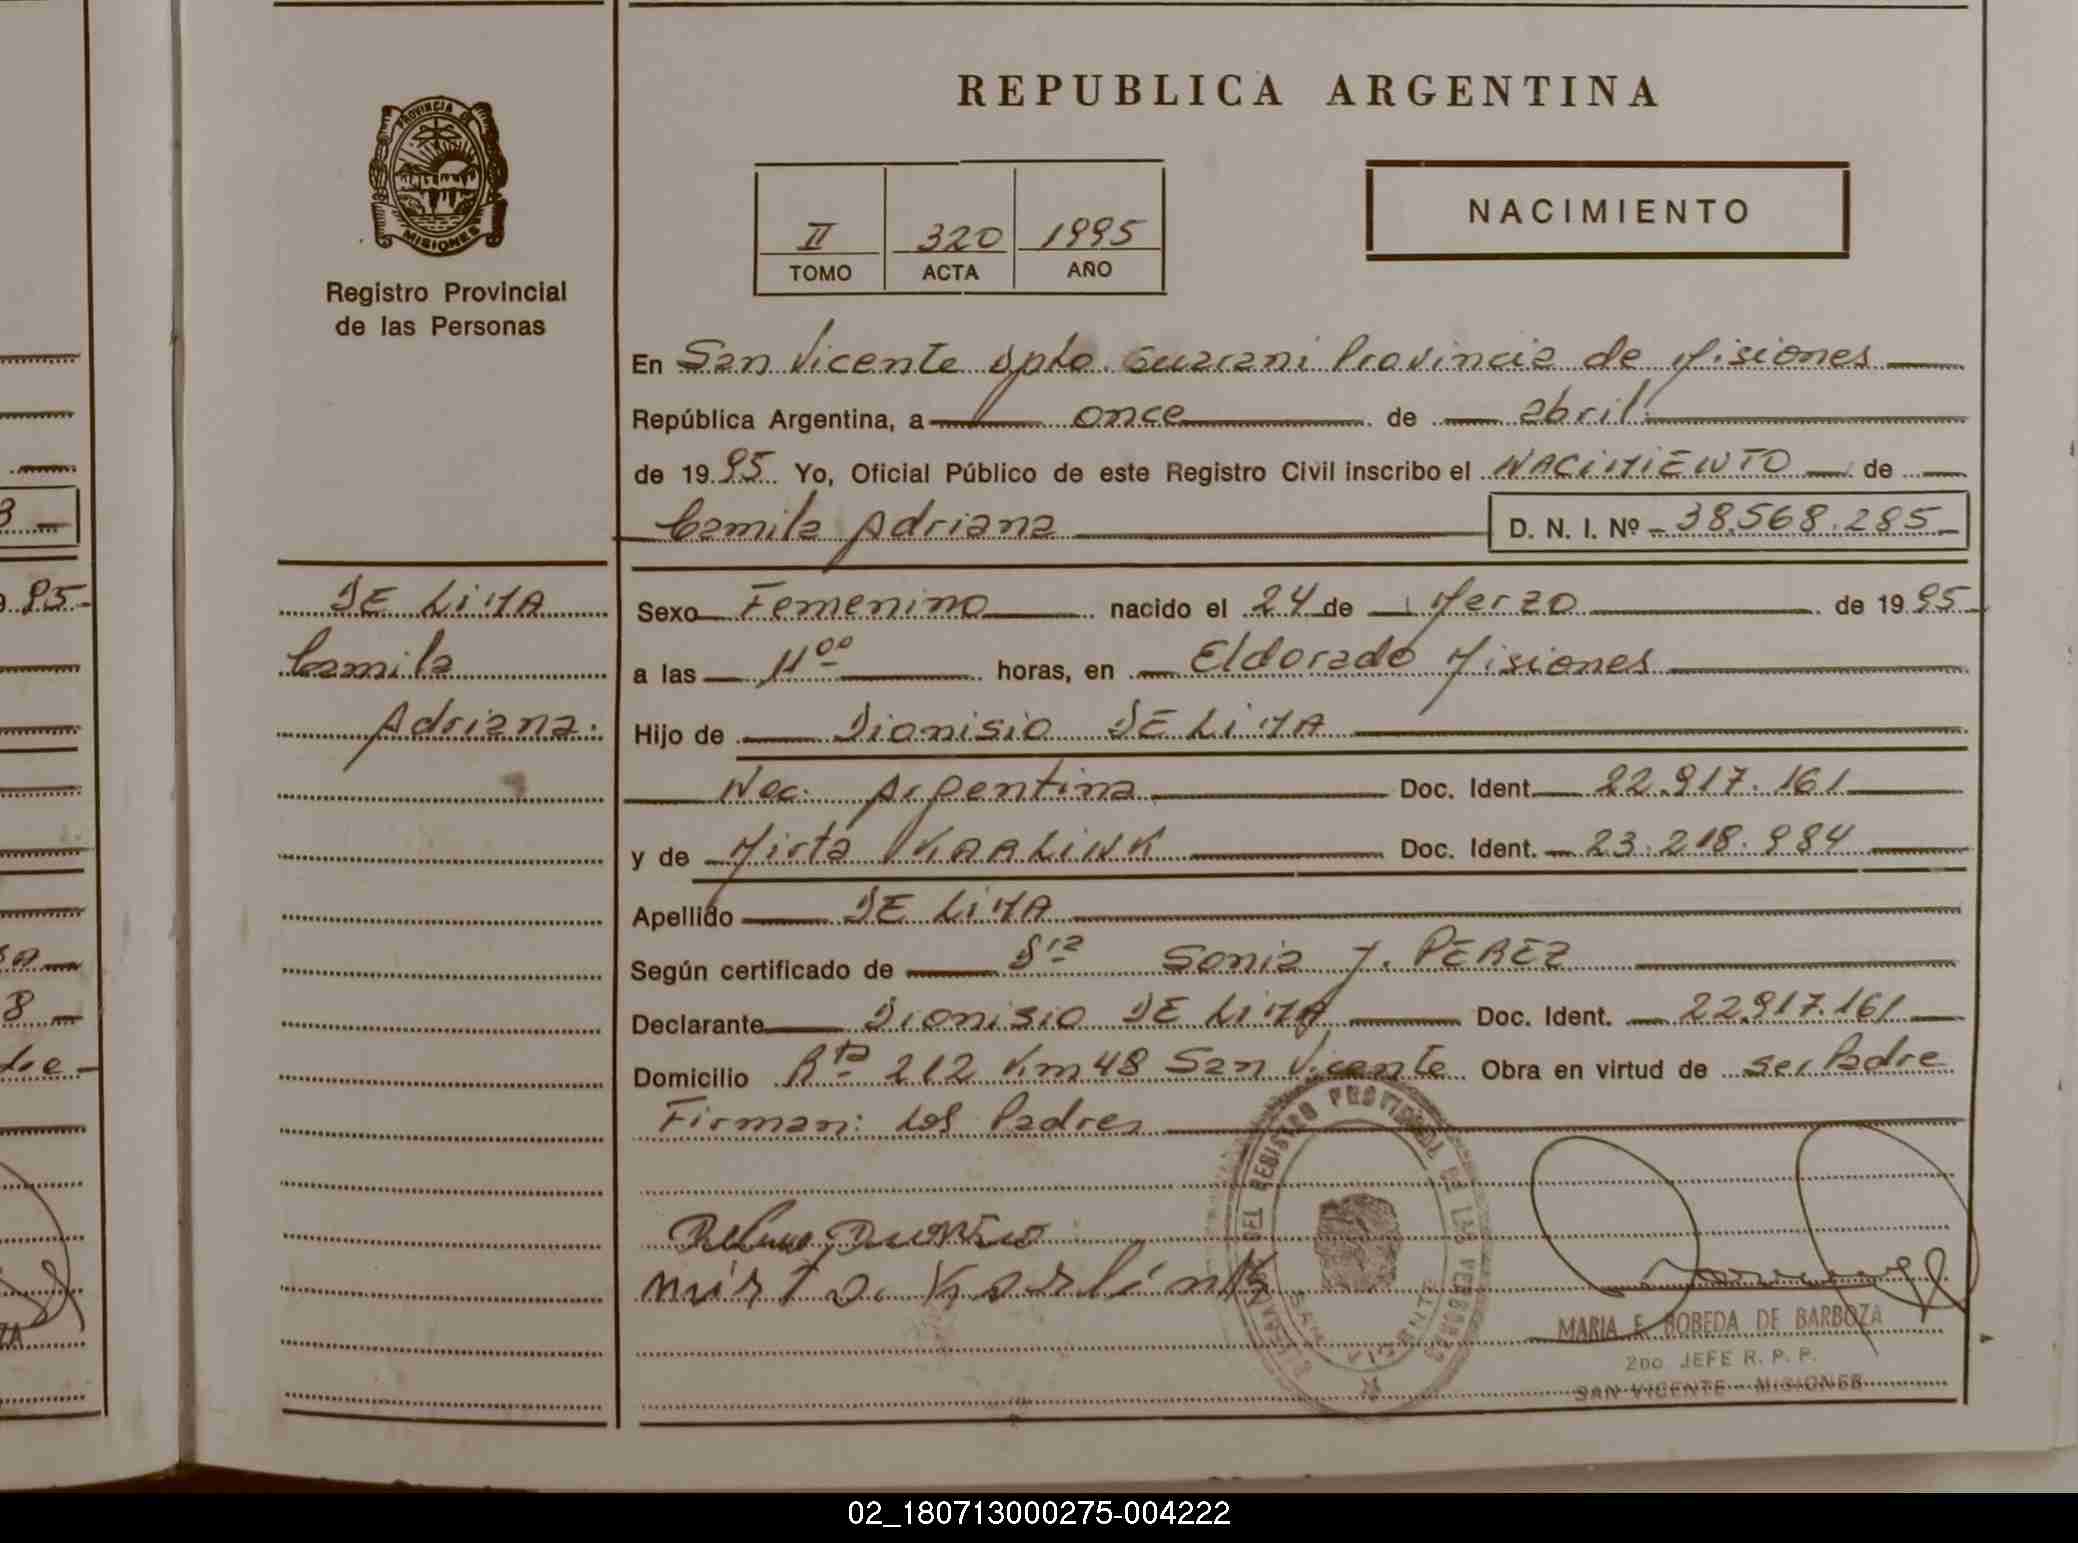 REPUBLICA ARGENTINA
PROVINCIA DE
MISIONES
Registro Provincial
de las Personas
II 320 1995
TOMO ACTA AÑO
NACIMIENTO
En San Vicente Dpto. Guarani Provincia de Misiones
República Argentina, a once de abril
de 1995 Yo, Oficial Público de este Registro Civil inscribo el NACIMIENTO de
Camila Adriana D. N. I. Nº 38.568.285
DE LIMA
Camila
Adriana.
Sexo Femenino nacido el 24 de Marzo de 1995
a las 11 00 horas, en Eldorado Misiones
Hijo de Dionisio DE LIMA
Nac. Argentina Doc. Ident. 22.917.161
y de Mirta KARLINK Doc. Ident. 23.218.984
Apellido DE LIMA
Según certificado de Sra Sonia J. PEREZ
Declarante Dionisio DE LIMA Doc. Ident. 22.917.161
Domicilio Rta 212 Km 48 San Vicente Obra en virtud de ser Padre
Firman: los Padres
mirta Karlink
DEL REGISTRO PROVINCIAL DE LAS PERSONAS
SAN VICENTE
MARIA E. BOBEDA DE BARBOZA
2DO JEFE R. P. P.
SAN VICENTE - MISIONES
95
8
02_180713000275-004222